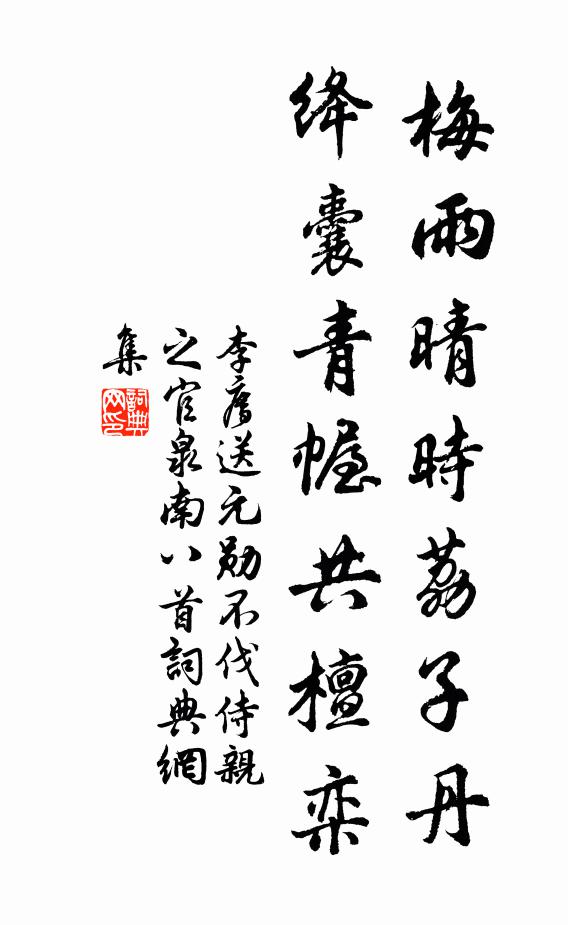 梅雨晴時荔子丹
絳囊青幄共檀欒
李廌送元勛不伐侍親
之官泉南八首詞典網
集
詞典網印